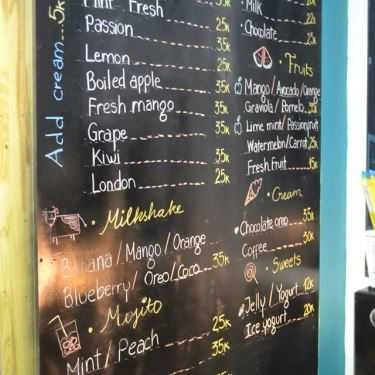 Add cream 5K
Mint Fresh 25K
Passion 35K
Lemon 25K
Boiled apple 35K
Fresh mango 35K
Grape 35K
Kiwi 35K
London 25K
Milkshake
Banana/Mango/Orange
Blueberry/Oreo/Coco 35K
Mojito
Mint/Peach 25K
35K
Milk 22K
Chocolate 25K
Fruits
Mango/Avocado/Orange
Graviola/Pomelo 35K
Lime mint/Passionfruit
Watermelon/Carrot 25K
Fresh fruit 15K
Cream
Chocolate oreo 35K
Coffee 30K
Sweets
Jelly/Yogurt 12K
Ice yogurt 20K